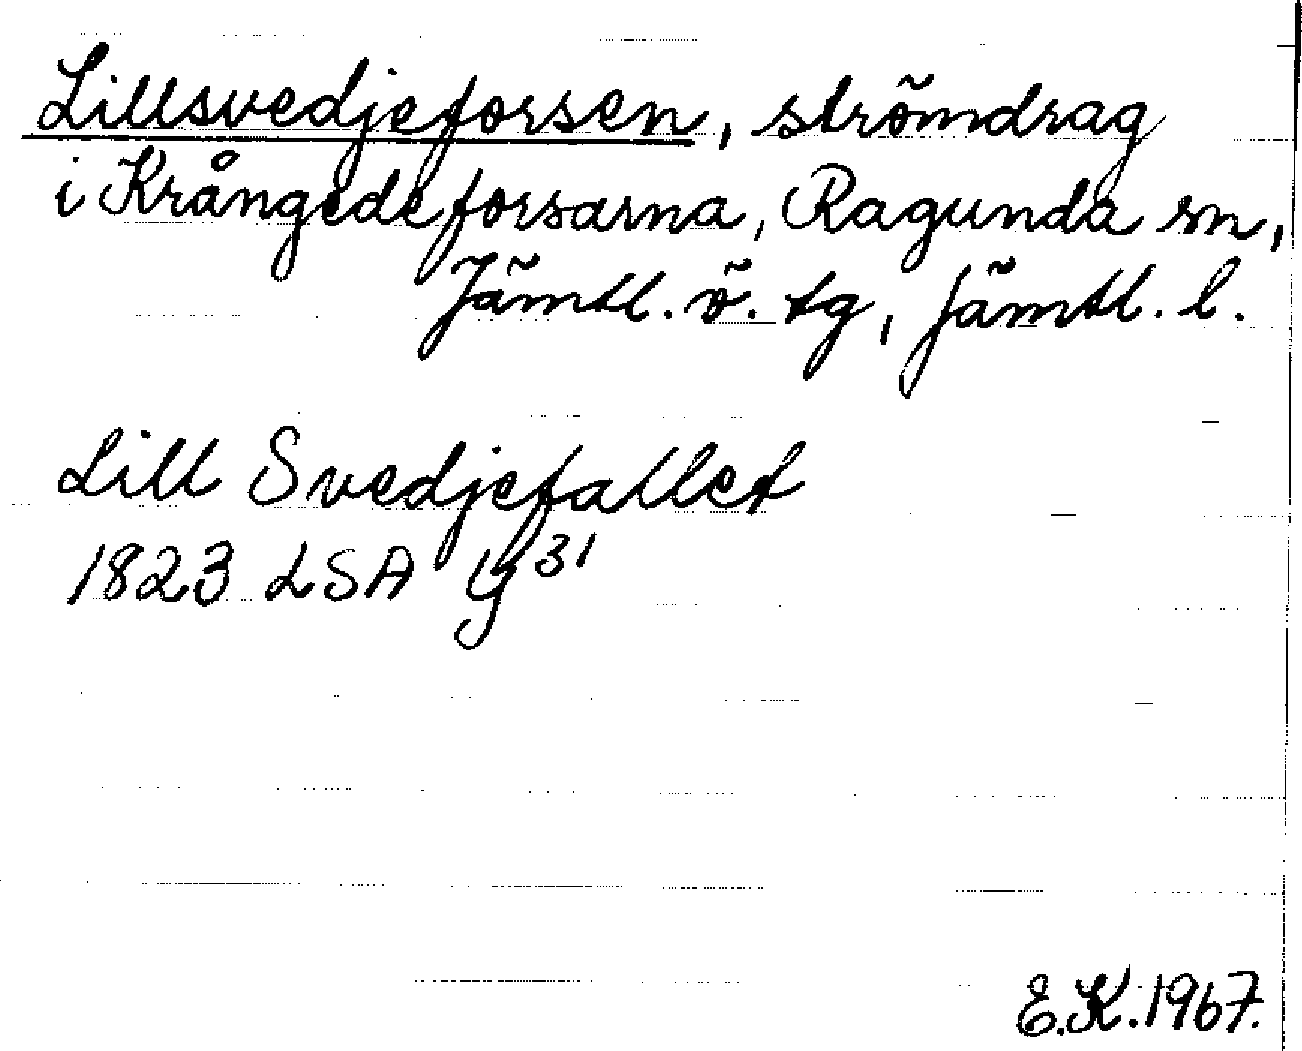 Lillsvedjeforsen, strömdrag
i Krångedeforsarna, Ragunda sn,
Jämtl. ö. tg, Jämtl. l.
Lill Svedjefallet
1823 LSA Y 31
E.K. 1967.